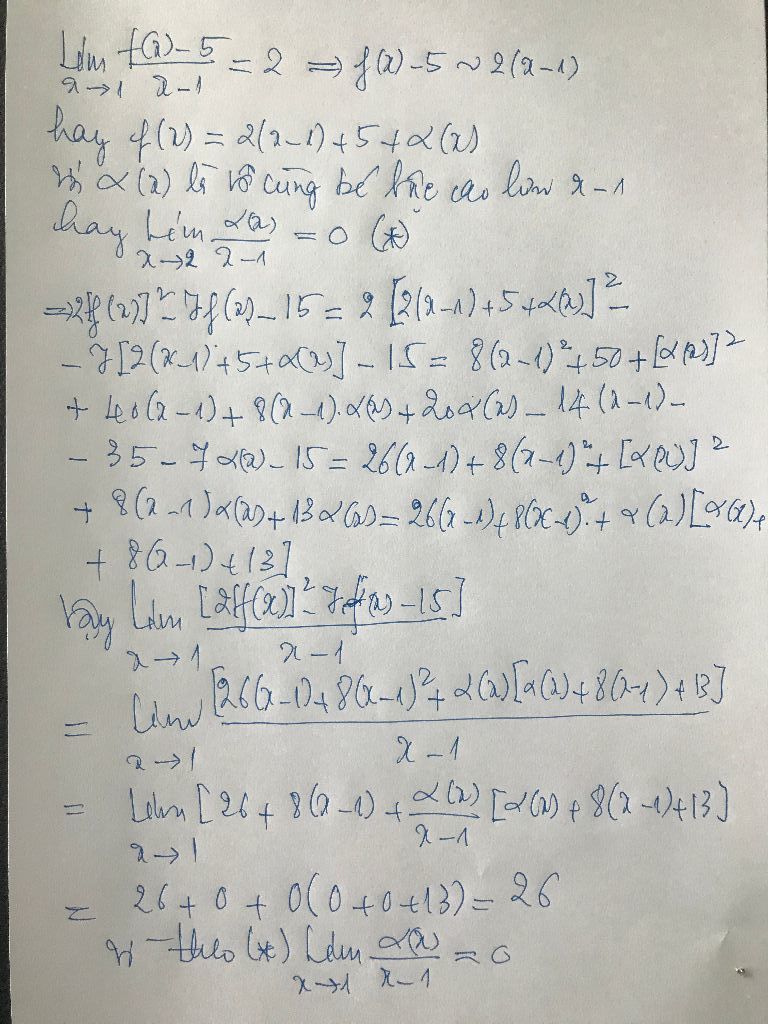 Lim f(x)-5 / x-1 = 2 ⇒ f(x)-5 ~ 2(x-1)
x→1
hay f(x) = 2(x-1)+5+α(x)
vì α(x) là vô cùng bé bậc cao hơn x-1
hay Lim α(x) / x-1 = 0 (*)
x→2
⇒ 2[f(x)]² - 7f(x) - 15 = 2[2(x-1)+5+α(x)]² -
- 7[2(x-1)+5+α(x)] - 15 = 8(x-1)²+50+[α(x)]²
+ 40(x-1) + 8(x-1).α(x) + 20α(x) - 14(x-1) -
- 35 - 7α(x) - 15 = 26(x-1) + 8(x-1)² + [α(x)]²
+ 8(x-1)α(x) + 13α(x) = 26(x-1) + 8(x-1)² + α(x)[α(x)+
+ 8(x-1)+13]
Vậy Lim [2[f(x)]² - 7f(x) - 15] / x-1
x→1
= Lim [26(x-1) + 8(x-1)² + α(x)[α(x)+8(x-1)+13] / x-1
x→1
= Lim [26 + 8(x-1) + α(x) / x-1 [α(x) + 8(x-1)+13]
x→1
= 26 + 0 + 0(0+0+13) = 26
vì theo (*) Lim α(x) / x-1 = 0
x→1